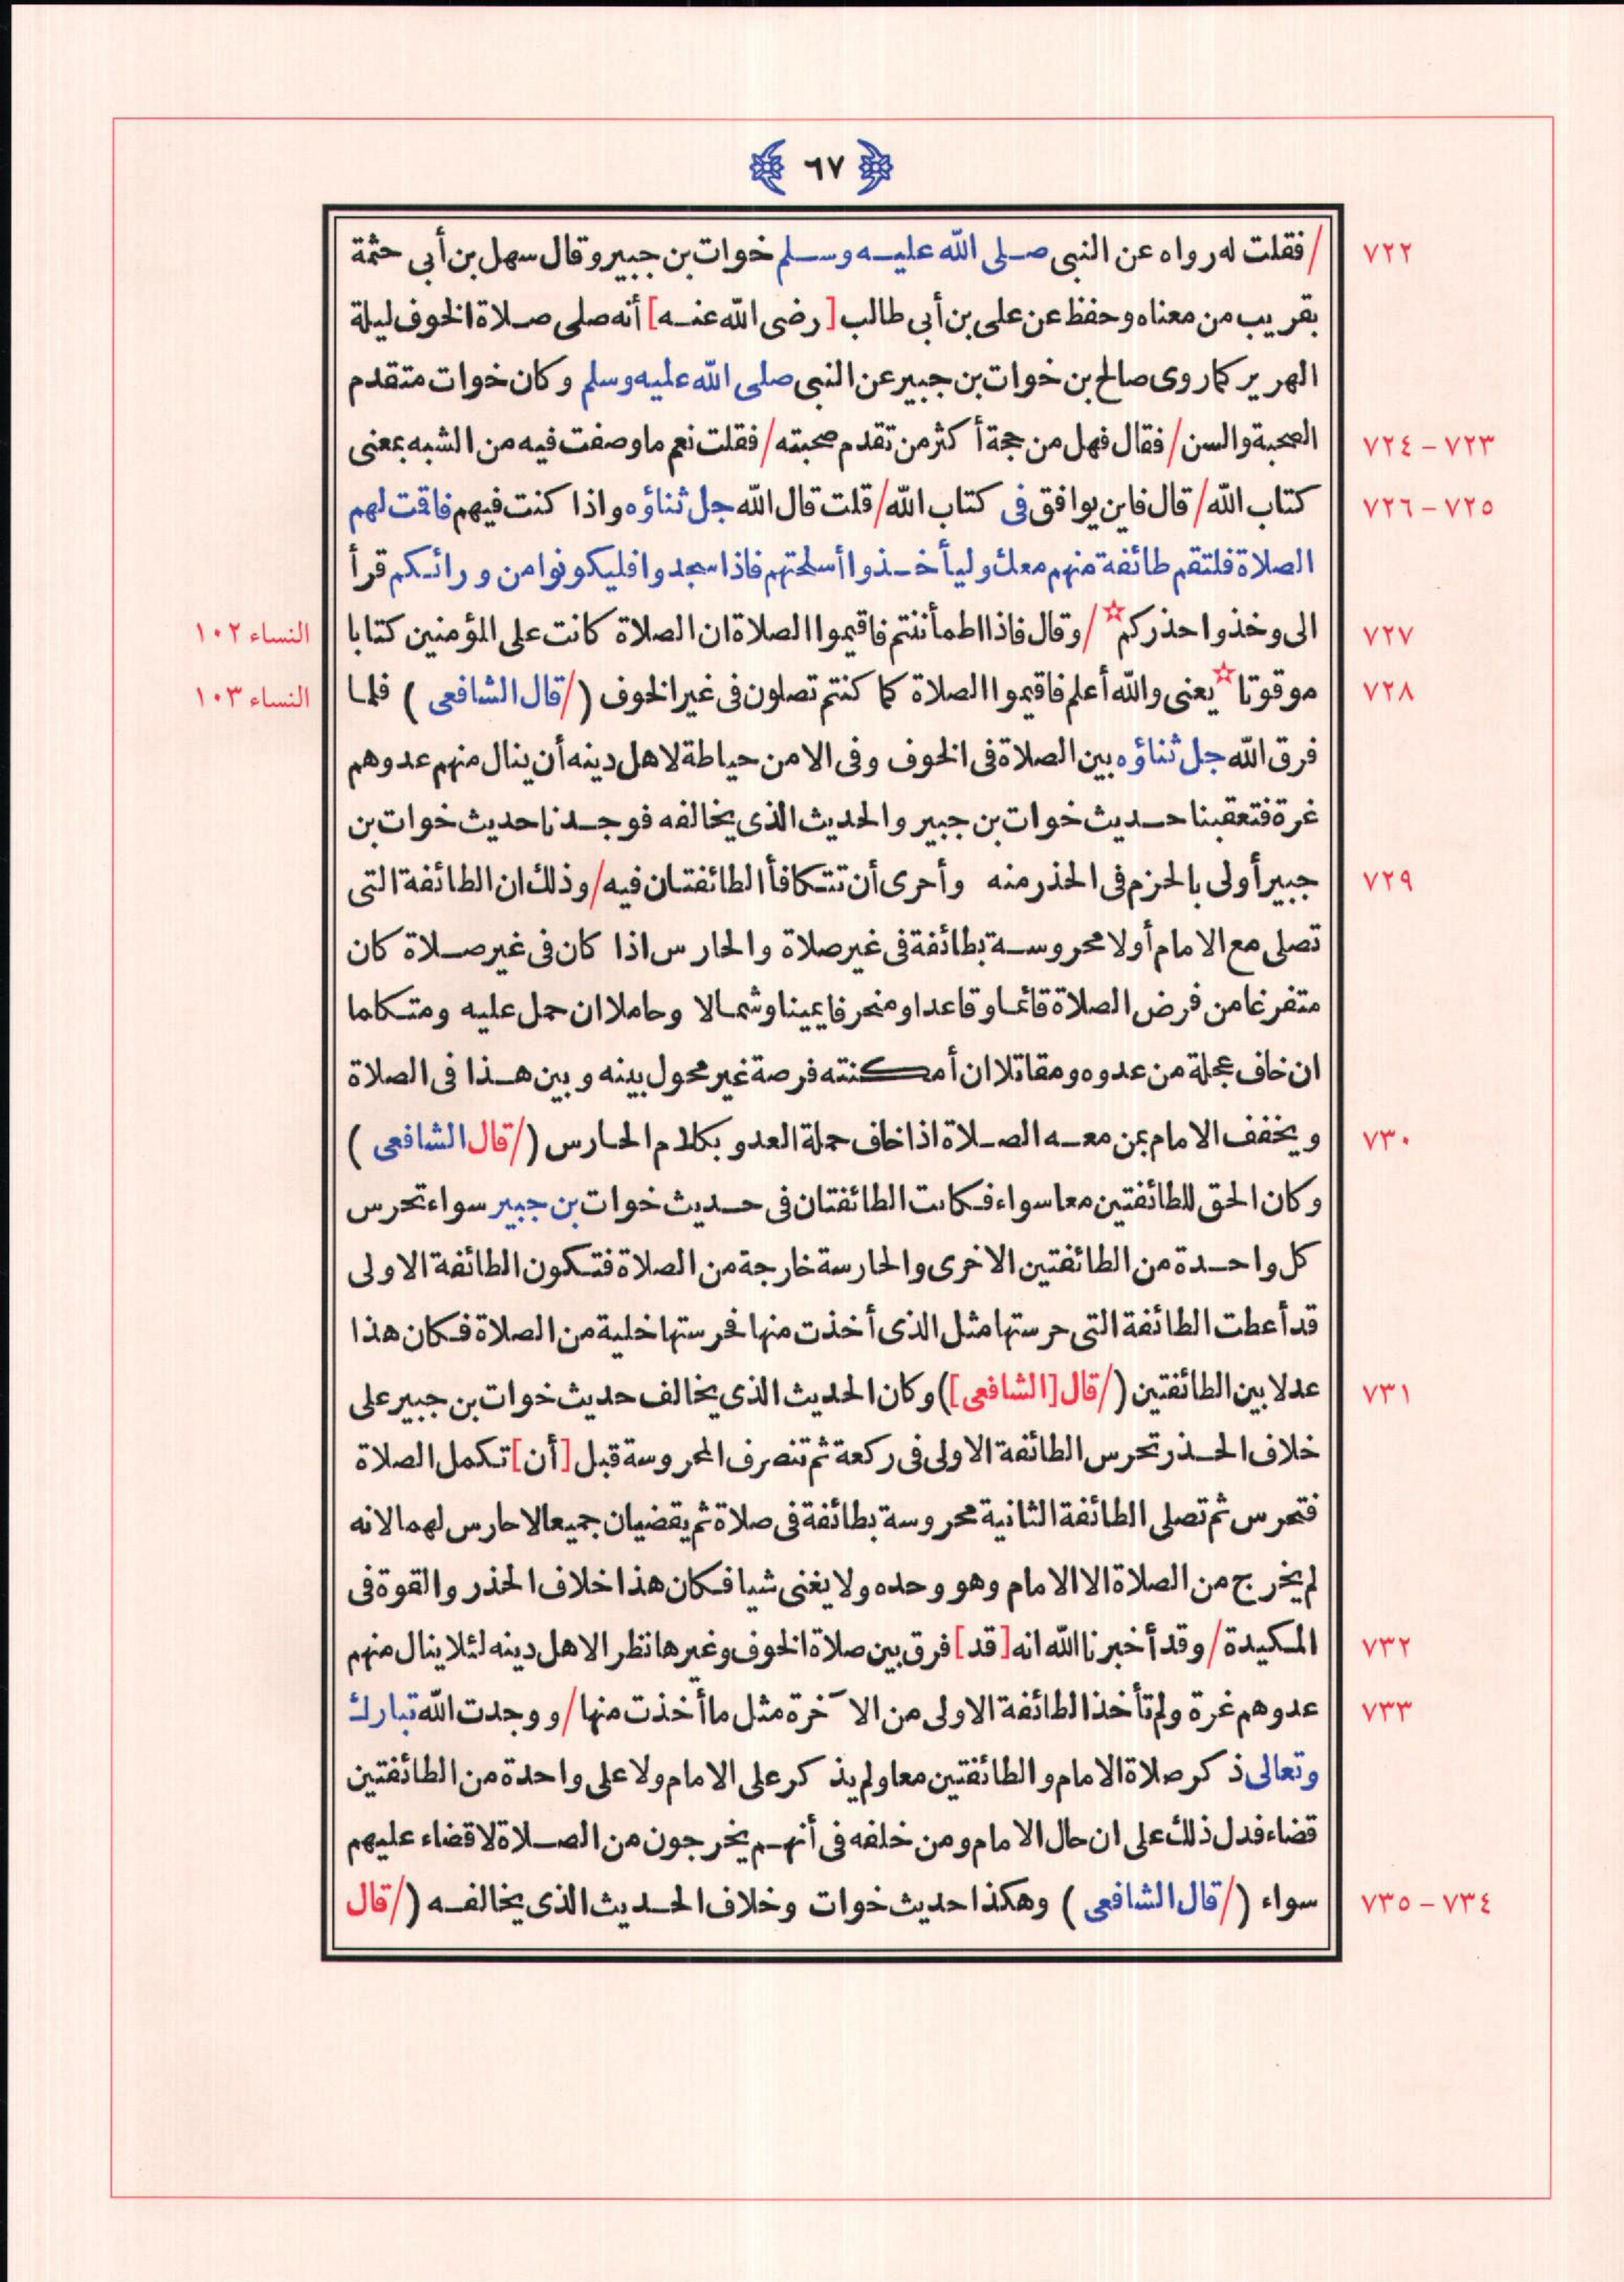 ٦٧
٧٢٢ /فقلت له رواه عن النبى صلى الله عليه وسلم خوات بن جبير وقال سهل بن أبى حثمة
بقريب من معناه وحفظ عن على بن أبى طالب [رضى الله عنه] أنه صلى صلاة الخوف ليلة
الهرير كما روى صالح بن خوات بن جبير عن النبى صلى الله عليه وسلم وكان خوات متقدم
٧٢٣ – ٧٢٤ الصحبة والسن / فقال فهل من حجة أكثر من تقدم صحبته / فقلت نعم ما وصفت فيه من الشبه بمعنى
٧٢٥ – ٧٢٦ كتاب الله / قال فاين يوافق فى كتاب الله / قلت قال الله جل ثناؤه واذا كنت فيهم فاقت لهم
الصلاة فلتقم طائفة منهم معك وليأخذوا أسلحتهم فاذا سجدوا فليكونوا من ورائكم قرأ
٧٢٧ الى وخذوا حذركم☆ / وقال فاذا اطمأننتم فاقيموا الصلاة ان الصلاة كانت على المؤمنين كتابا النساء ١٠٢
٧٢٨ موقوتا☆ يعنى والله أعلم فاقيموا الصلاة كما كنتم تصلون فى غير الخوف (/ قال الشافعى) فلما النساء ١٠٣
فرق الله جل ثناؤه بين الصلاة فى الخوف وفى الامن حياطة لاهل دينه أن ينال منهم عدوهم
غرة فتعقبنا حديث خوات بن جبير والحديث الذى يخالفه فوجدنا حديث خوات بن
٧٢٩ جبير أولى بالحزم فى الحذر منه وأحرى أن تتكافأ الطائفتان فيه / وذلك ان الطائفة التى
تصلى مع الامام أولا محروسة بطائفة فى غير صلاة والحارس اذا كان فى غير صلاة كان
متفرغا من فرض الصلاة قائما وقاعدا ومنحرفا يمينا وشمالا وحاملا ان حمل عليه ومتكاما
ان خاف عجلة من عدوه ومقاتلا ان أمكنته فرصة غير محول بينه وبين هذا فى الصلاة
٧٣٠ ويخفف الامام بمن معه الصلاة اذا خاف حملة العدو بكلام الحارس (/ قال الشافعى)
وكان الحق للطائفتين معا سواء فكانت الطائفتان فى حديث خوات بن جبير سواء تحرس
كل واحدة من الطائفتين الاخرى والحارسة خارجة من الصلاة فتكون الطائفة الاولى
قد أعطت الطائفة التى حرستها مثل الذى أخذت منها فحرستها خلية من الصلاة فكان هذا
٧٣١ عدلا بين الطائفتين (/ قال [الشافعى]) وكان الحديث الذى يخالف حديث خوات بن جبير على
خلاف الحذر تحرس الطائفة الاولى فى ركعة ثم تنصرف المحروسة قبل [أن] تكمل الصلاة
فتحرس ثم تصلى الطائفة الثانية محروسة بطائفة فى صلاة ثم يقضيان جميعا لا حارس لهما لانه
لم يخرج من الصلاة الا الامام وهو وحده ولا يغنى شيا فكان هذا خلاف الحذر والقوة فى
٧٣٢ المكيدة / وقد أخبرنا الله انه [قد] فرق بين صلاة الخوف وغيرها نظرا لاهل دينه لئلا ينال منهم
٧٣٣ عدوهم غرة ولم تأخذ الطائفة الاولى من الآخرة مثل ما أخذت منها / ووجدت الله تبارك
وتعالى ذكر صلاة الامام والطائفتين معا ولم يذكر على الامام ولا على واحدة من الطائفتين
قضاء فدل ذلك على ان حال الامام ومن خلفه فى أنهم يخرجون من الصلاة لا قضاء عليهم
٧٣٤ – ٧٣٥ سواء (/ قال الشافعى) وهكذا حديث خوات وخلاف الحديث الذى يخالفه (/ قال